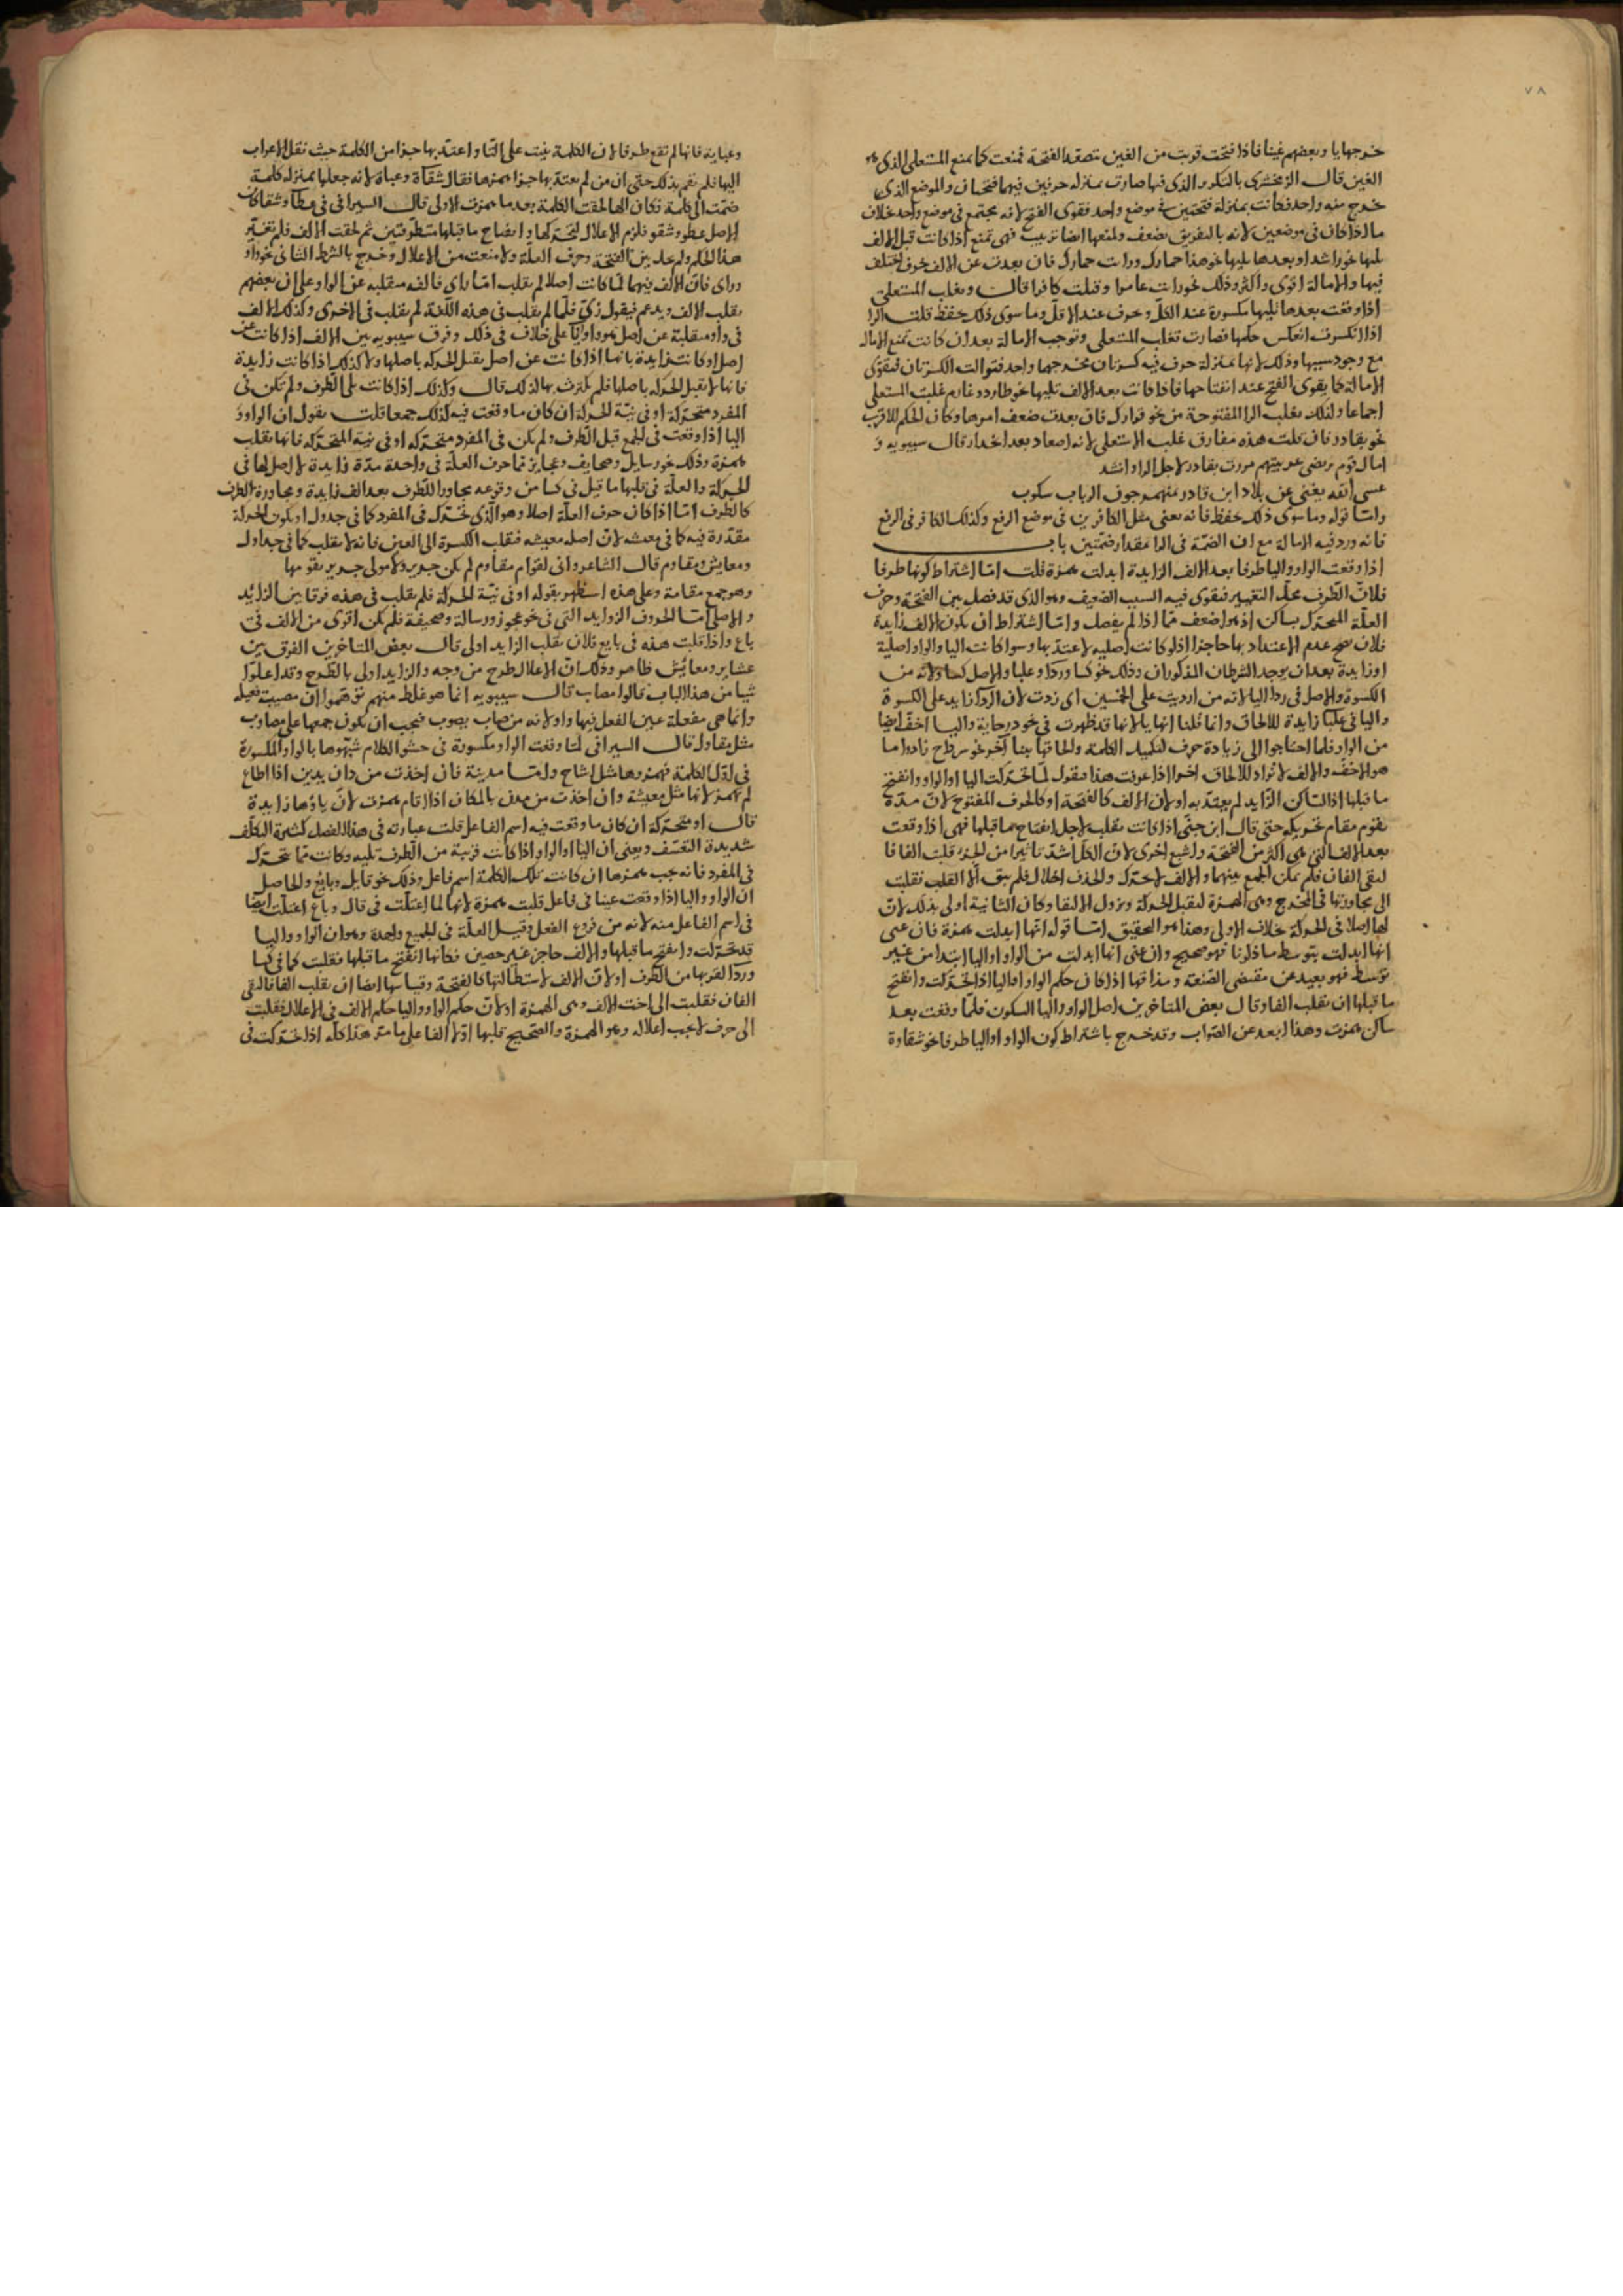 ٧٨
خرجها يا وبعضهم غينا فاذا فتحت قربت من الغين تصقد الفتحة فمنعت كما يمنع المستعلى الذى هو
الغين قال الزمخشرى بالتكرير الذى فيها صارت بمنزلة حرفين فيهما فتحتان والموضع الذى
خرج منه واحد فكانت بمنزلة فتحتين فى موضع واحد فقوى الفتح لانه يجتمع فى موضع واحد بخلاف
ما اذا كان فى موضعين لانه بالتفريق يضعف ولمنعها ايضا ترتيب فهى تمنع اذا كانت قبل الالف
تليها نحو راشد او بعدها تليها نحو هذا حمارك ورايت حمارك فان بعدت عن الالف نحو فيختلف
فيها والامالة اقوى واكثر وذلك نحو رايت عامرا وقتلت كافرا قال وتغلب المستعلى
اذا وقعت بعدها تليها مكسورة عند الكل وحرف عند الاقل وما سوى ذلك حفظ قلت الرا
اذا انكسرت انعكس حكمها فصارت تغلب المستعلى وتوجب الامالة بعد ان كانت تمنع الامالة
مع وجود سببها وذلك لانها بمنزلة حرف فيه كسرتان مخرجهما واحد فتوالت الكسرتان فيقوى
الامالة كما يقوى الفتح عند انفتاحها فاذا كانت بعد الالف تليها نحو طارد وغارم غلبت المستعلى
اجماعا وكذلك تغلب الرا المفتوحة من نحو قرارك فان بعدت ضعف امرها وكان الحكم للاقرب
نحو بقادر فان قلت هذه مفارق غلب المستعلى لانه اصعاد بعد انحدار قال سيبويه و
امال قوم ترتضى عربيتهم مررت بقادر لاجل الرا وانشد
عسى الله يغنى عن بلاد ابن قادر بمنهمر جون الرباب سكوب
وامّا قوله وما سوى ذلك حفظ فانه يعنى مثل الكافرين فى موضع الرفع وكذلك الكافر فى الرفع
فانه ورد فيه الامالة مع ان الضمة فى الرا بمقدار ضمتين باب
اذا وقعت الواو واليا طرفا بعد الالف الزايدة ابدلت همزة قلت امّا اشتراط كونها طرفا
فلانّ الطرف محل التغيير فيقوى فيه السبب الضعيف وهو الذى قد فصل بين الفتحة وحرف
العلّة المتحرك بساكن اذ هو اضعف ممّا اذا لم يفصل وامّا اشتراط ان يكون الالف زايدة
فلان يصح عدم الاعتداد بها حاجزا اذ لو كانت اصلية لاعتد بها وسوا كانت اليا والواو اصلية
او زايدة بعد ان يوجد الشرطان المذكوران وذلك نحو كسا وردا وعلبا والاصل كساو لانه من
الكسوة والاصل فى ردا اليا لانه من ارديت على الخمسين اى زدت لان الردا زايد على الكسوة
واليا فى علبا زايدة للالحاق وانما قلنا انها يا لانها قد ظهرت فى نحو درحاية واليا اخف ايضا
من الواو فلما احتاجوا الى زيادة حرف لتكميل الكلمة والحاقها ببنا اخر نحو سرداح زادوا ما
هو الاخف والالف لا تزاد للالحاق اخرا اذا عرفت هذا فنقول لمّا تحركت اليا او الواو وانفتح
ما قبلها اذ الساكن الزايد لم يعتد به او لان الالف كالفتحة او كالحرف المفتوح لانّ مدّة
تقوم مقام تحريكه حتى قال ابن جنى اذا كانت تقلب لاجل انفتاح ما قبلها فهى اذا وقعت
بعد الالف التى هى اكثر من الفتحة واشبع احرى لان الكل اشد تاثيرا من الجزء قلبت الفا فا
لتقى الفان فلم يمكن الجمع بينهما والالف لا تحرك والحذف اخلال فلم يبق الا القلب فقلبت
الى مجاورتها فى المخرج وهى الهمزة لتقبل الحركة ويزول الالتقا وكان الثانية اولى بذلك لانّ
لها اصلا فى الحركة بخلاف الاولى وهذا هو التحقيق امّا قوله انها ابدلت همزة فان عنى
انها ابدلت بتوسط ما ذكرنا فهو صحيح وان عنى انها ابدلت من الواو او اليا ابتدا من غير
توسّط فهو بعيد عن مقتضى الصنعة ومذاقها اذ كان حكم الواو او اليا اذا تحركت وانفتح
ما قبلها ان تقلب الفا وقال بعض المتاخرين اصل الواو واليا السكون فلمّا وقعت بعد
ساكن همزت وهذا ابعد عن الصواب وقد خرج باشتراط كون الواو او اليا طرفا نحو شقاوة
وعباية فانها لم تقع طرفا لان الكلمة بنيت على التا واعتد بها جزا من الكلمة حيث نقل الاعراب
اليها فلم تهمز بذلك حتى ان من لم يعتد بها جزا همزها فقال شقاة وعباة لانه جعلها بمنزلة كلمة
ضمت الى كلمة فكان الها لحقت الكلمة بعد ما همزت الاولى قال السيرافى فى عطا وشقا كان
الاصل عطو وشقو فلزم الاعلال لتحركها وانفتاح ما قبلها متطرفتين ثم لحقت الالف فلم تغير
هذا الحكم ولم تحل بين الفتحة وحرف العلّة ولا منعت من الاعلال وخرج بالشرط الثانى نحو واو
وراى فان الالف فيهما لما كانت اصلا لم يقلب امّا راى فالفه منقلبة عن الواو وعلى ان بعضهم
يقلب الالف ويدغم فيقول زىّ فلمّا لم يقلب فى هذه اللغة لم يقلب فى الاخرى وكذلك الالف
فى واو منقلبة عن اصل هو واو او يا على خلاف فى ذلك وفرق سيبويه بين الالف اذا كانت عن
اصل او كانت زايدة بانها اذا كانت عن اصل يقبل الحركة باصلها ولا كذلك اذا كانت زايدة
فانها لا تقبل الحركة باصلها فلم يكترث بها لذلك قال وكذلك اذا كانت تلى الطرف ولم تكن فى
المفرد متحركة او فى نية الحركة ان كان ما وقعت فيه لذلك جمعا قلت يقول ان الواو و
اليا اذا وقعت فى الجمع قبل الطرف ولم يكن فى المفرد متحركة او فى نية المتحركة فانها تقلب
همزة وذلك نحو رسايل وصحايف وعجايز مما حرف العلّة فى واحدة مدّة زايدة لا اصل لها فى
الحركة والعلّة فى قلبها ما قيل فى كسا من وقوعه مجاورا للطرف بعد الف زايدة ومجاورة الطرف
كالطرف امّا اذا كان حرف العلّة اصلا وهو الذى تحرك فى المفرد كما فى جدول او يكون الحركة
مقدّرة فيه كما فى معيشة لانّ اصله معيشة فنقلت الكسرة الى العين فانه لا يقلب كما فى جداول
ومعايش ومقاوم قال الشاعر وانى لقوّام مقاوم لم يكن جرير ولا مولى جرير يقومها
وهو جمع مقامة وعلى هذه استظهر بقوله او فى نية الحركة فلم يقلب فى هذه فرقا بين الزايد
والاصلى امّا الحروف الزوايد التى فى نحو عجوز ورسالة وصحيفة فلم يكن اقوى من الالف فى
باع واذا قلبت هذه فى بايع فلان يقلب الزايد اولى قال بعض المتاخرين الفرق بين
عشاير ومعايش ظاهر وذلك انّ الاعلال طرح من وجه والزايد اولى بالطرح وقد اعلوا
شيا من هذا الباب قالوا مصايب قال سيبويه انما هو غلط منهم توهموا ان مصيبة فعيلة
وانما هى مفعلة عين الفعل فيها واو لانه من صاب يصوب فيجب ان يكون جمعها على مصاوب
مثل مقاول قال السيرافى لما وقعت الواو مكسورة فى حشو الكلام شبهوها بالواو المكسورة
فى اول الكلمة فهمزوها مثل اشاح وامّا مدينة فان اخذت من دان يدين اذا اطاع
لم تهمز لانها مثل معيشة وان اخذت من مدن بالمكان اذا اقام همزت لانّ ياؤها زايدة
قال او متحركة ان كان ما وقعت فيه اسم الفاعل قلت عبارته فى هذا الفصل كثيرة التكلف
شديدة التعسف ويعنى ان اليا او الواو اذا كانت قريبة من الطرف تليه وكانت مما تحرك
فى المفرد فانه يجب همزها ان كانت تلك الكلمة اسم فاعل وذلك نحو قايل وبايع والحاصل
ان الواو واليا اذا وقعت عينا فى فاعل قلبت همزة لانها لما اعتلت فى قال وباع اعتلت ايضا
فى اسم الفاعل منه لانه من فروع الفعل وقيل العلّة فى الجميع واحدة وهو ان الواو واليا
قد تحركت وانفتح ما قبلها والالف حاجز غير حصين فكانها انفتح ما قبلها فقلبت كما فى كسا
وردا لقربها من الطرف او لانّ الالف لاستطالتها كالفتحة وقياسها ايضا ان يقلب الفا فالتقى
الفان فقلبت الى اخت الالف وهى الهمزة او لانّ حكم الواو واليا حكم الالف فى الاعلال فقلبت
الى حرف لا يجب اعلاله وهو الهمزة والصحيح قلبها اولا الفا على ما مرّ هذا كله اذا تحركت فى